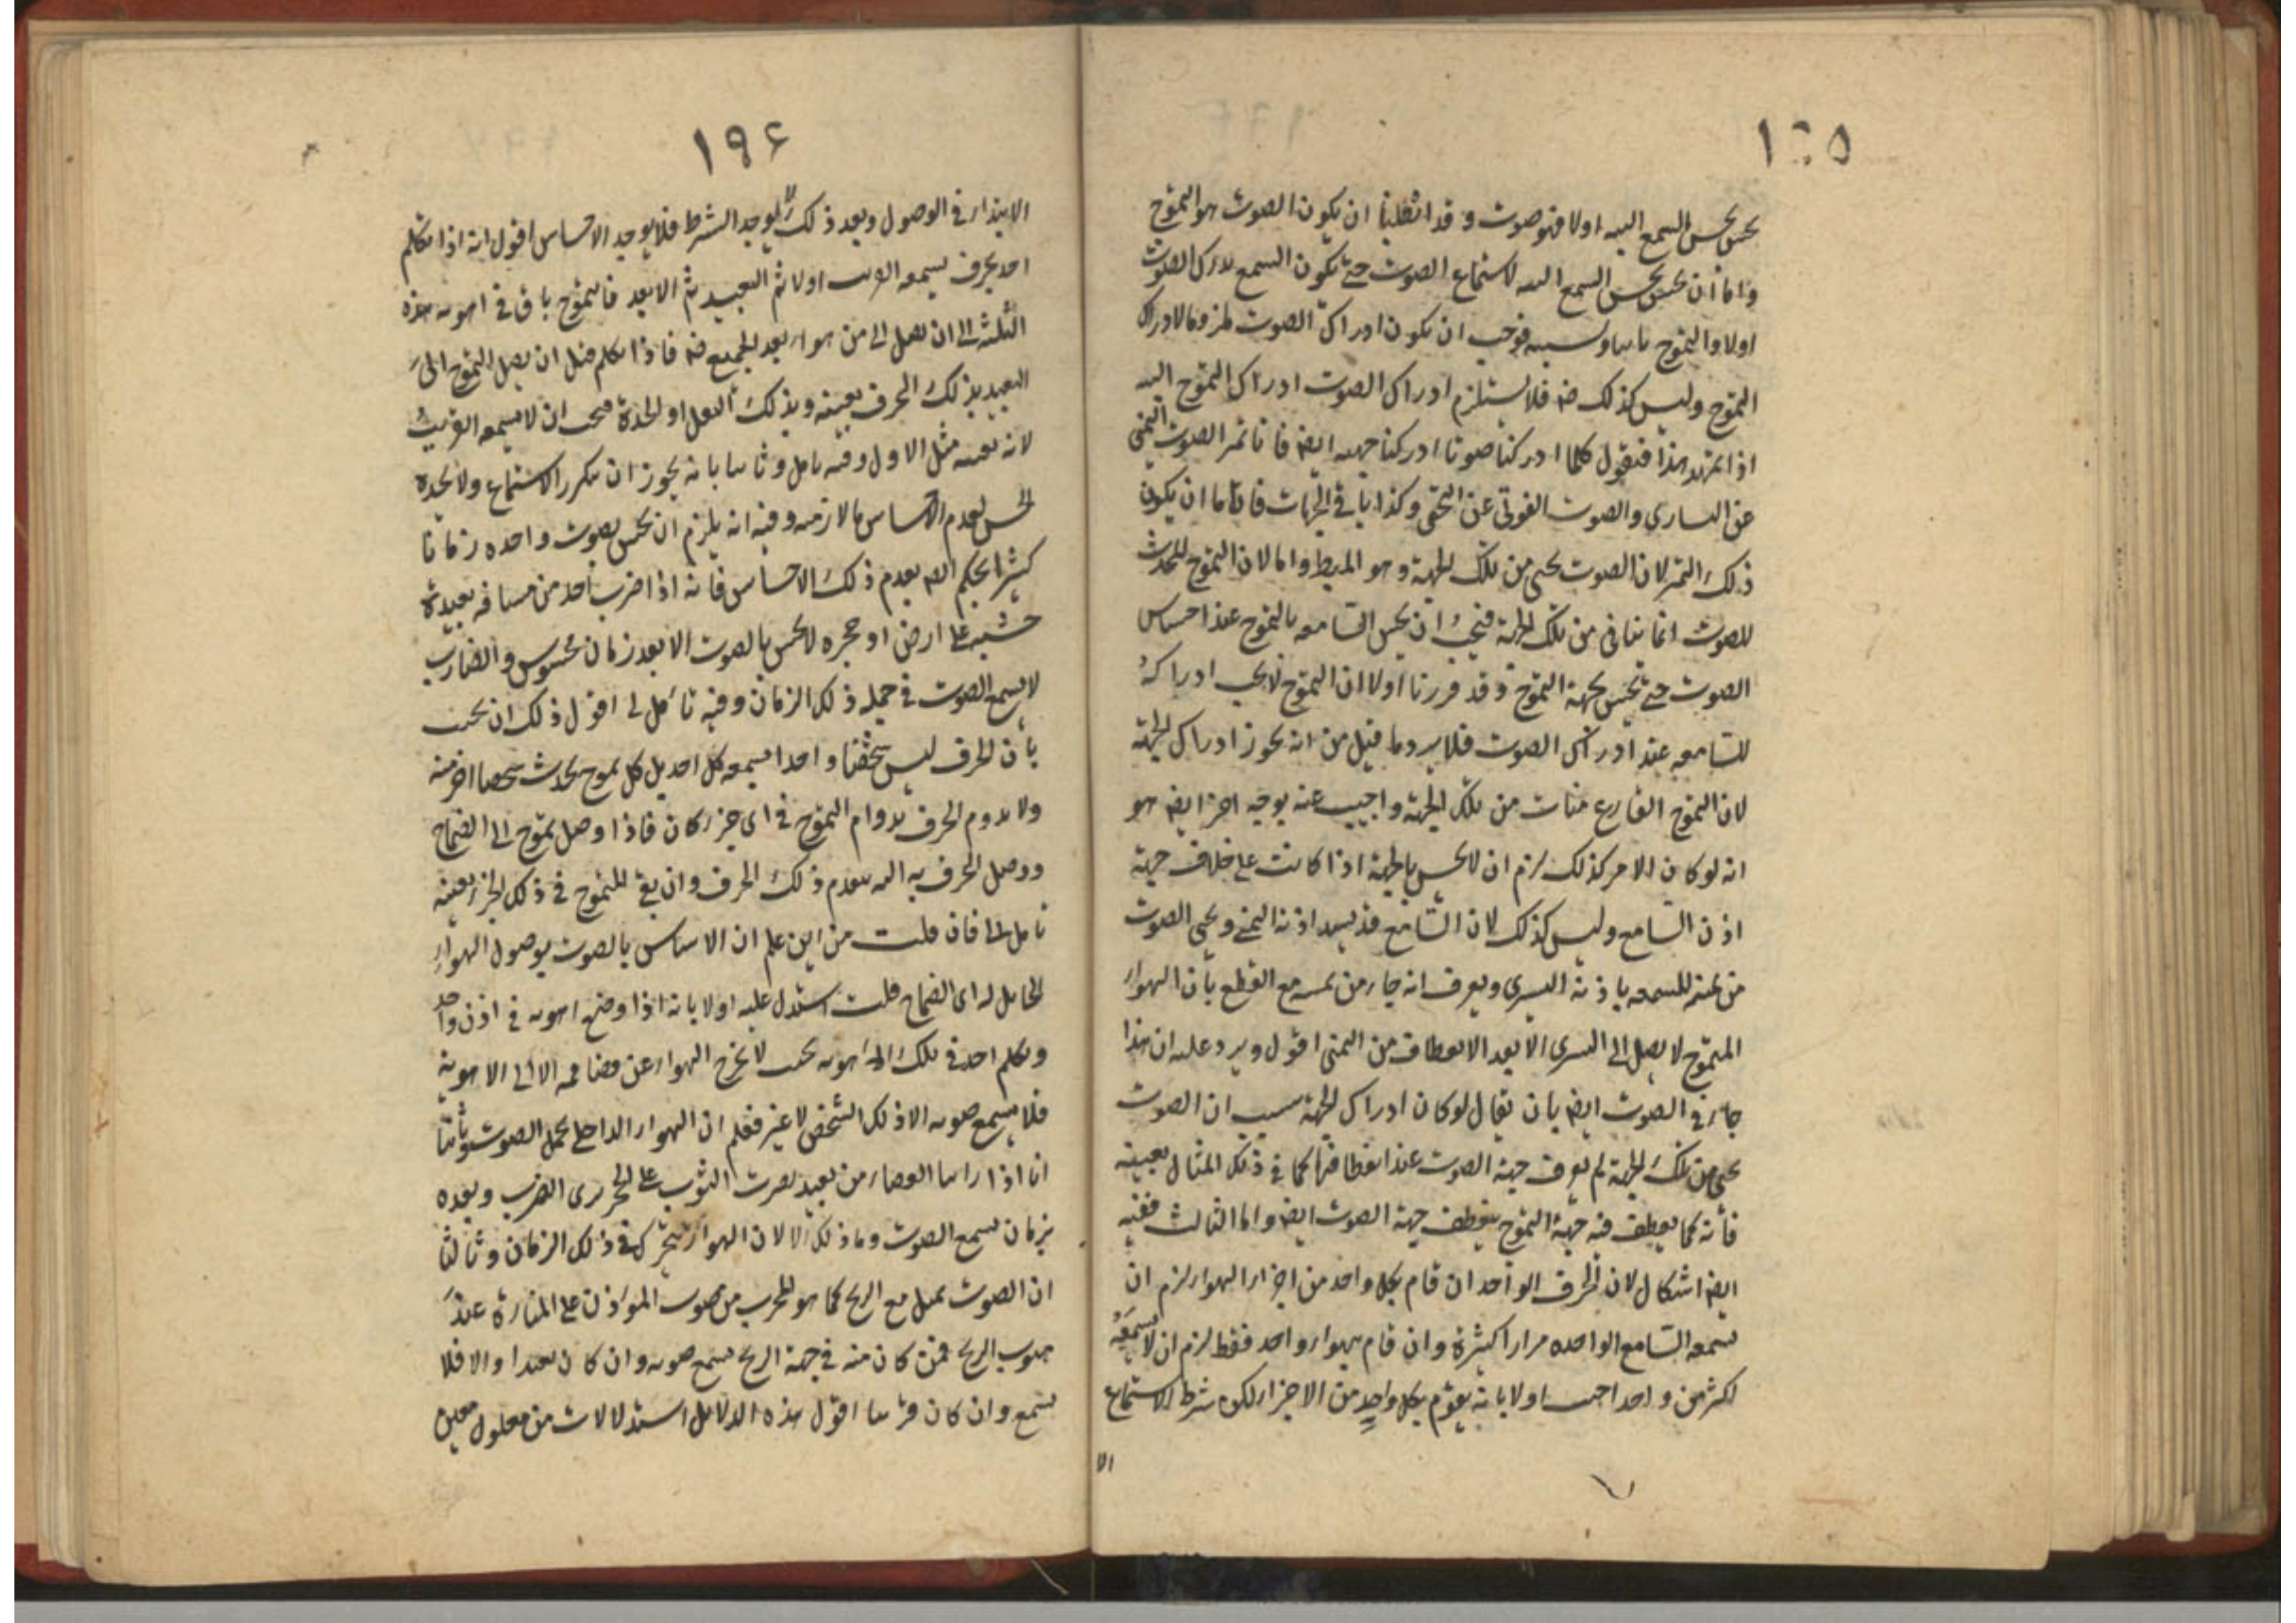 ١٩٥
يحس بحس السمع اليه اولا فهو صوت و قد ابطلنا ان يكون الصوت هو التموج
واما ان يحس بحس السمع اليه لاستماع الصوت حتى يكون السمع يدرك الصوت
اولا والتموج ثانيا وبسببه فوجب ان يكون ادراك الصوت ملزوما لادراك
التموج وليس كذلك فلا يستلزم ادراك الصوت ادراك التموج اليه
اذا تمهد هذا فنقول كلما ادركنا صوتا ادركنا جهته ايضا فانا نميز الصوت اليمنى
عن اليسارى والصوت الفوقى عن التحتى وكذا باقى الجهات فاما ان يكون
ذلك التميز لان الصوت يجئ من تلك الجهة وهو المط واما لان التموج المحدث
للصوت انما يتأتى من تلك الجهة فيجب ان يحس السامعه بالتموج عند احساس
الصوت حتى يحس بجهة التموج و قد قررنا اولا ان التموج لا يجب ادراكه
للسامعه عند ادراك الصوت فلا يرد ما قيل من انه يجوز ادراك الجهة
لان التموج القارع منات من تلك الجهة واجيب عنه بوجه اخر ايضا هو
انه لو كان الامر كذلك لزم ان لا يحس بالجهة اذا كانت على خلاف جهة
اذن السامع وليس كذلك لان السامع قد يسد اذنه اليمنى ويجئ الصوت
من يمينه فيسمعه باذنه اليسرى ويعرف انه جاء من يمينه مع القطع بان الهواء
المتموج لا يصل الى اليسرى الا بعد الانعطاف من اليمنى اقول ويرد عليه ان هذا
جار فى الصوت ايضا بان يقال لو كان ادراك الجهة بسبب ان الصوت
يجئ من تلك الجهة لم يعرف جهة الصوت عند انعطافها كما فى ذلك المثال بعينه
فانه كما ينعطف فيه جهة التموج ينعطف جهة الصوت ايضا واما الثالث ففيه
ايضا اشكال لان الحرف الواحد ان قام بكل واحد من اجزاء الهواء لزم ان
يسمعه السامع الواحد مرارا كثيرة وان قام بهواء واحد فقط لزم ان لا يسمعه
اكثر من واحد اجيب اولا بانه يقوم بكل واحد من الاجزاء لكن شرط الاستماع
الا
١٩٤
الابتداء فى الوصول وبعد ذلك لا يوجد الشرط فلا يوجد الاحساس اقول انه اذا تكلم
احد بحرف يسمعه القريب اولا ثم البعيد ثم الابعد فالتموج باق فى اهويه هذه
الثلثة الى ان يصل الى من هو ابعد الجميع فاذا تكلم قبل ان يصل التموج الى
البعيد بذلك الحرف بعينه وبذلك الثقل او الحدة فيجب ان لا يسمعه القريب
لانه بعينه مثل الاول وفيه تامل وثانيا بانه يجوز ان يتكرر الاستماع ولا يحده
الحس لعدم الاحساس بالازمنه وفيه انه يلزم ان يحس بصوت واحد زمانا
كثيرا يحكم بعدم ذلك الاحساس فانه اذا ضرب احد من مسافه بعيدة
خشبه على ارض او حجره لا يحس بالصوت الا بعد زمان محسوس والضارب
لا يسمع الصوت فى جمله ذلك الزمان وفيه تأمل اقول ذلك ان يجيب
بان الحرف ليس شخصا واحدا يسمعه كل احد بل كل تموج يحدث شخصا اخر منه
ولا يدوم الحرف بدوام التموج فى اى جزء كان فاذا وصل تموج الى الصماخ
ووصل الحرف به اليه ينعدم ذلك الحرف وان بقى المتموج فى ذلك الجزء بعينه
تامل فان قلت من اين علم ان الاحساس بالصوت بوصول الهواء
الحامل له الى الصماخ قلت استدل عليه اولا بانه اذا وضع انبوبه فى اذن واحد
وتكلم احد فى تلك الانبوبه بحيث لا يخرج الهواء عن فضاء فمه الا الى الانبوبة
فلا يسمع صوته الا ذلك الشخص لا غير فعلم ان الهواء الداخل يحمل الصوت وثانيا
انا اذا راينا القصار من بعيد يضرب الثوب على الحجر نرى الضرب وبعده
بزمان نسمع الصوت وما ذلك الا لان الهواء يتحرك فى ذلك الزمان وثالثا
ان الصوت يميل مع الريح كما هو المجرب من صوت المؤذن على المنارة عند
هبوب الريح فمن كان منه فى جهة الريح يسمع صوته وان كان بعيدا والا فلا
يسمع وان كان قريبا اقول هذه الدلايل استدلالات من معلول معين